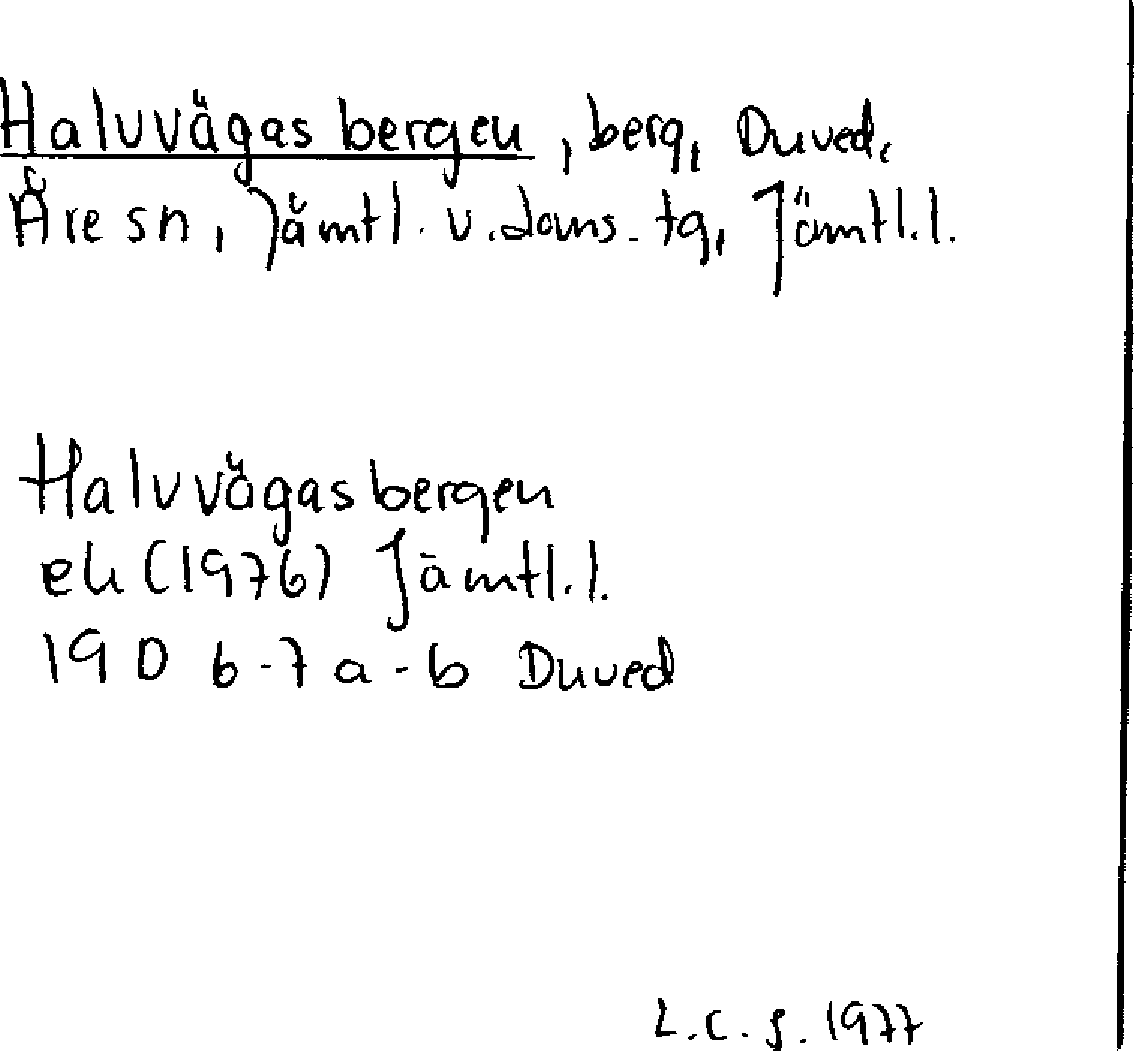 Halvvägasbergen, berg, Duved,
Åre sn, Jämtl. v. doms. tg, Jämtl. l.
Halvvägasbergen
ek (1976) Jämtl. l.
19 D 6-7 a-b Duved
L.C.S. 1977